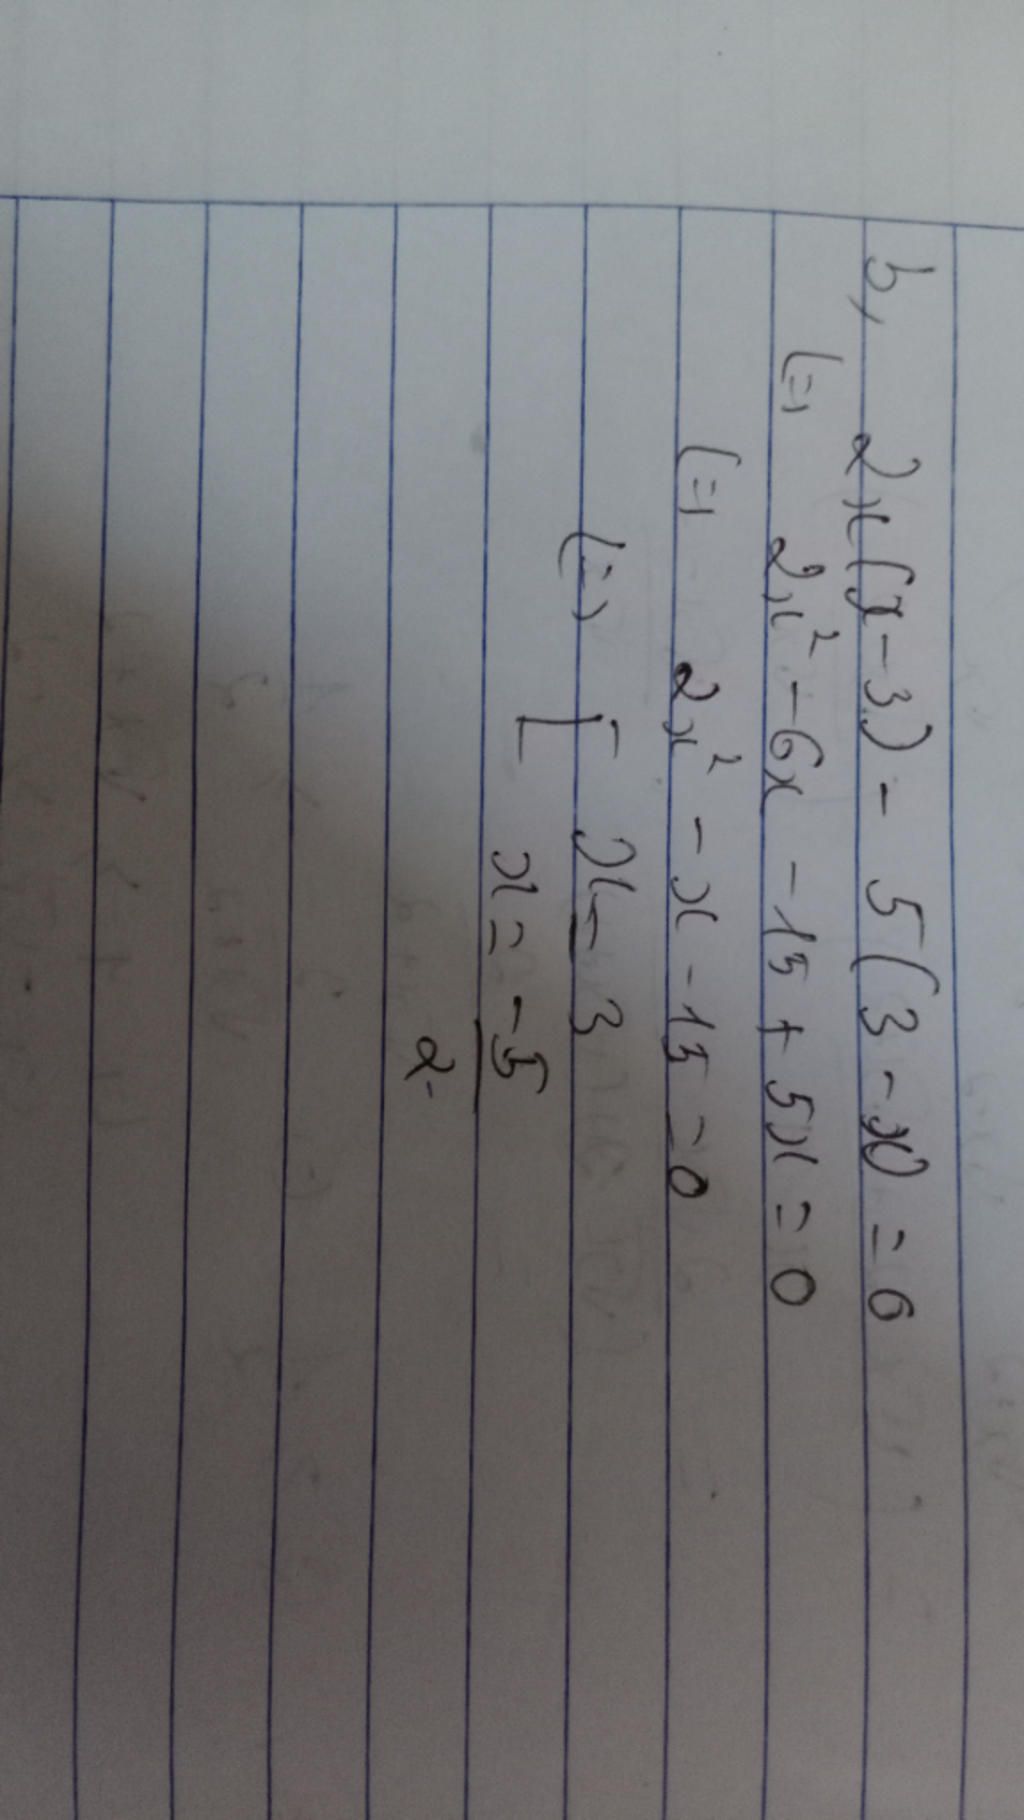 b, 2x(x-3) - 5(3-x) = 0
<=> 2x² - 6x - 15 + 5x = 0
<=> 2x² - x - 15 = 0
<=> [ x = 3
x = -5/2